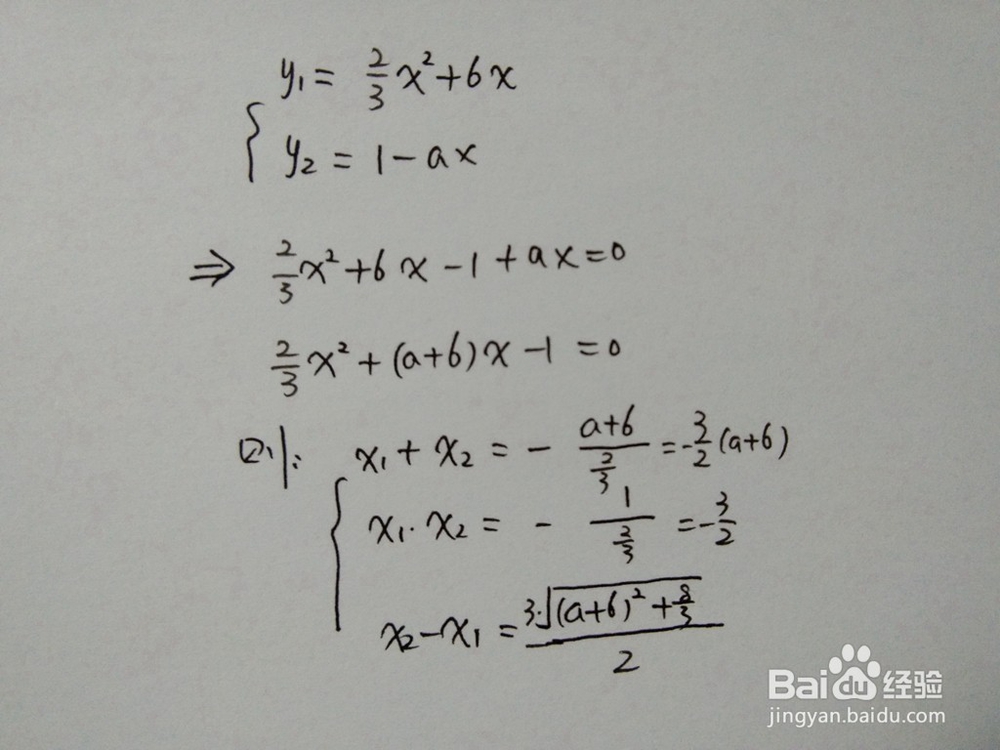 y₁ = 2/3 x² + 6x
{ y₂ = 1 - ax
⇒ 2/3 x² + 6x - 1 + ax = 0
2/3 x² + (a+6)x - 1 = 0
则: x₁ + x₂ = - (a+6)/(2/3) = -3/2 (a+6)
{ x₁·x₂ = - 1/(2/3) = -3/2
x₂ - x₁ = 3·√((a+6)² + 8/3) / 2
Baidu 经验
jingyan.baidu.com